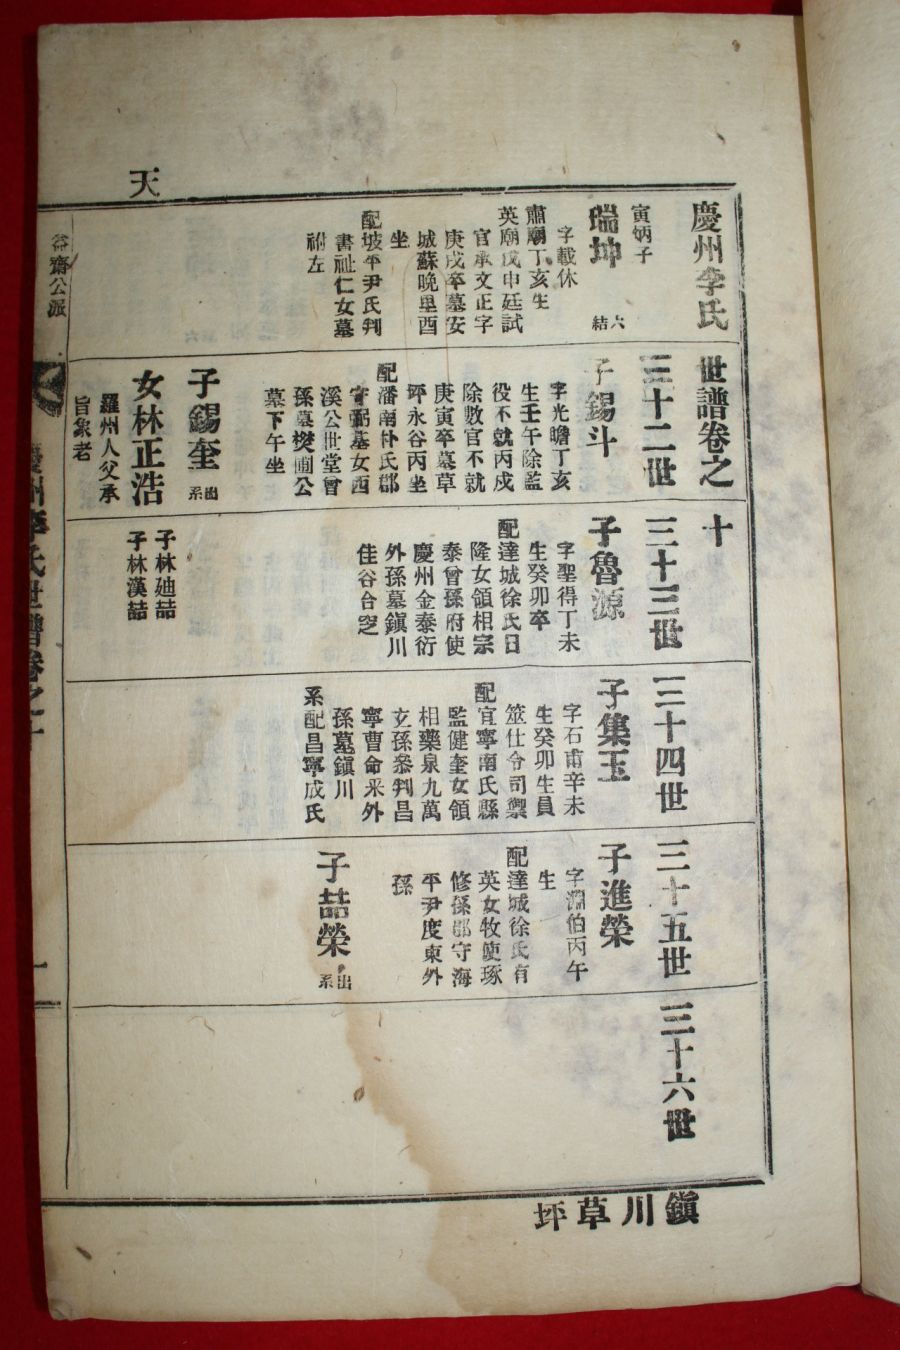 天
慶州李氏世譜卷之十
寅炳子
瑞坤
六
結
字載休
肅廟丁亥生
英廟戊申廷試
官承文正字
庚戌卒墓安
城蘇晩里酉
坐
配坡平尹氏判
書祉仁女墓
祔左
三十二世
子錫斗
字光瞻丁亥
生壬午除監
役不就丙戌
除敎官不就
庚寅卒墓草
坪永谷丙坐
配潘南朴氏郡
守弼基女西
溪公世堂曾
孫墓樊圃公
墓下午坐
子錫奎
出
系
女林正浩
羅州人父承
旨象老
三十三世
子魯源
字聖得丁未
生癸卯卒
配達城徐氏日
隆女領相宗
泰曾孫府使
慶州金泰衍
外孫墓鎭川
佳谷合窆
子林迪喆
子林漢喆
三十四世
子集玉
字石甫辛未
生癸卯生員
筮仕令司禦
配宜寧南氏縣
監健奎女領
相藥泉九萬
玄孫參判昌
寧曹命采外
孫墓鎭川
系配昌寧成氏
三十五世
子進榮
字淵伯丙午
生
配達城徐氏有
英女牧使琢
修孫郡守海
平尹度東外
孫
子喆榮
出
系
三十六世
鎭川草坪
齋公派
李氏世譜卷之十
一